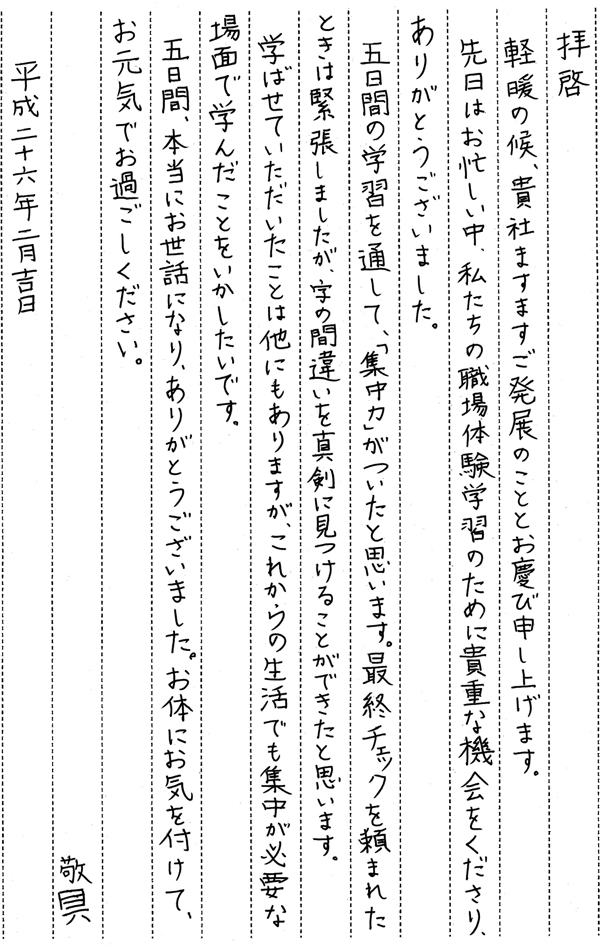 拝啓
軽暖の候、貴社ますますご発展のこととお慶び申し上げます。
先日はお忙しい中、私たちの職場体験学習のために貴重な機会をくださり、
ありがとうございました。
五日間の学習を通して、「集中力」がついたと思います。最終チェックを頼まれた
ときは緊張しましたが、字の間違いを真剣に見つけることができたと思います。
学ばせていただいたことは他にもありますが、これからの生活でも集中が必要な
場面で学んだことをいかしたいです。
五日間、本当にお世話になり、ありがとうございました。お体にお気を付けて、
お元気でお過ごしください。
敬具
平成二十六年二月吉日